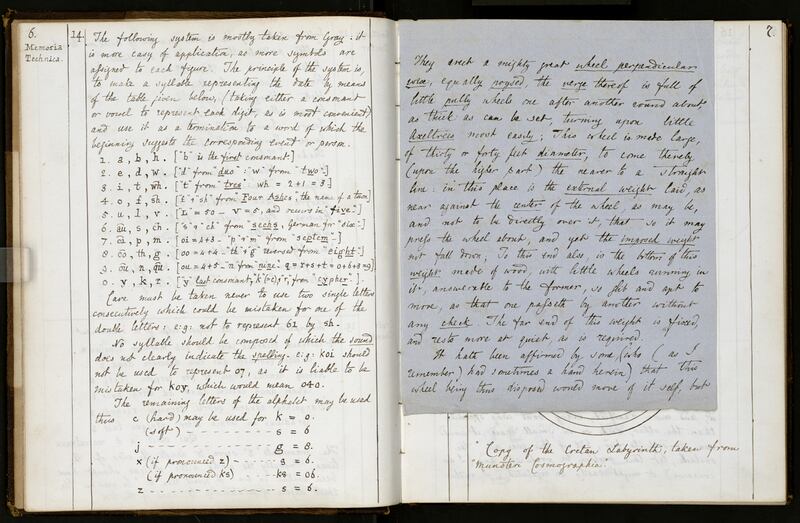 6.
Memoria
Technica.
14.
The following system is mostly taken from Gray: it
is more easy of application, as more symbols are
assigned to each figure. The principle of the system is,
to make a syllable representing the date by means
of the table given below, (taking either a consonant
or vowel to represent each digit, as is most convenient)
and use it as a termination to a word of which the
beginning suggests the corresponding event or person.
1. a, b, h. ["b" is the first consonant]
2. e, d, w. ["d" from "duo": "w" from "two":]
3. i, t, wh. ["t" from "tres": wh = 2+1 = 3]
4. o, f, sh. ["f" & "sh" from "Four Ashes", the name of a town]
5. u, l, v. ["L" = 50 — V = 5, and recurs in "five":]
6. au, s, ch. ["s" & "ch" from "sechs", German for "six":]
7. oi, p, m. [oi = 4+3 — "p" & "m" from "septem":]
8. oo, th, g. [oo = 4+4 — "th" & "g" reversed from "eight":]
9. ou, n, qu. [ou = 4+5 — "n" from "nine": q = r+s+t = 0+6+3 = 9]
0. y, k, r. ["y" last consonant, "k" (=c), "r", from "cypher":]
Care must be taken never to use two single letters
consecutively which could be mistaken for one of the
double letters: e:g: not to represent 61 by sh.
No syllable should be composed of which the sound
does not clearly indicate the spelling. e:g: koi should
not be used to represent 07, as it is liable to be
mistaken for koy, which would mean 040.
The remaining letters of the alphabet may be used
thus c (hard) may be used for k = 0.
(soft) s = 6
j g = 8.
x (if pronounced z) s = 6.
(if pronounced ks) ks = 06.
z s = 6.
7.
They erect a mighty great wheel perpendicular
wise, equally poysed, the verge thereof is full of
little pully wheels one after another round about
as thick as can be set, turning upon little
Axeltrees most easily; This wheel is made large,
of thirty or forty feet diameter, to come thereby
(upon the higher part) the nearer to a straight
line: in this place is the external weight laid, as
near against the center of the wheel as may be,
and not to be directly over it, that so it may
press the wheel about, and yet the weight
not fall down; To this end also, is the bottom of this
weight made of wood, with little wheels running in
it, answerable to the former, so apt and apt to
more, as that one passeth by another without
any check. The far end of this weight is fixed,
and rests more at quiet, as is required.
It hath been affirmed by some (who (as I
remember) had sometimes a hand herein) that this
wheel being thus disposed would move of it self, but
"Copy of the Cretan Labyrinth, taken from
"Munster Cosmographia".